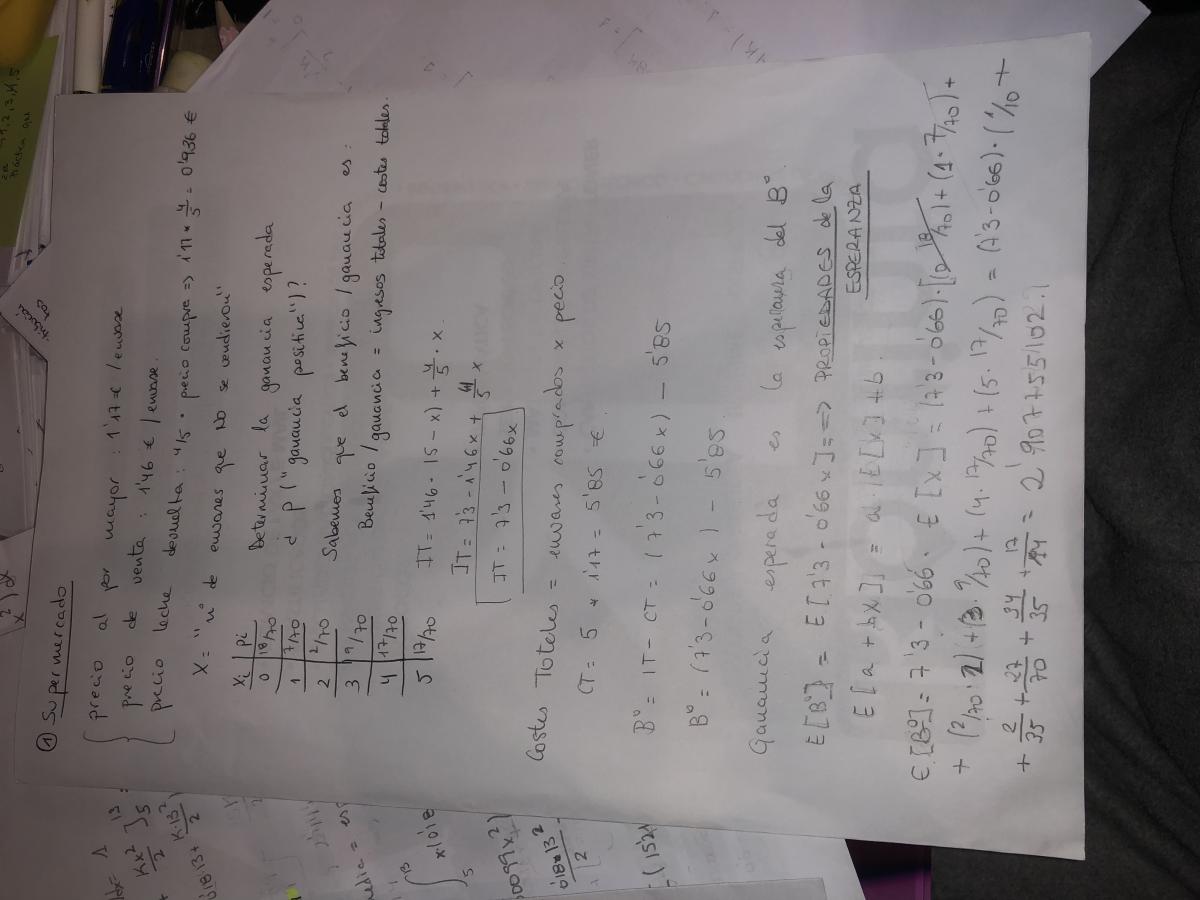 ① Supermercado
precio al por mayor : 1'17 € / envase
precio de venta : 1'46 € / envase.
precio leche devuelta : 4/5 · precio compra => 1'17 * 4/5 = 0'936 €
X = "nº de envases que NO se vendieron"
xi | pi
0 | 18/70
1 | 7/70
2 | 2/70
3 | 9/70
4 | 17/70
5 | 17/70
Determinar la ganancia esperada
¿ P ("ganancia positiva")?
Sabemos que el beneficio / ganancia es :
Beneficio / ganancia = ingresos totales - costes totales.
IT = 1'46 · (5 - x) + 4/5 · x.
IT = 7'3 - 1'46x + 4/5 x
IT = 7'3 - 0'66x
Costes Totales = envases comprados x precio
CT = 5 * 1'17 = 5'85 €
Bº = IT - CT = (7'3 - 0'66x) - 5'85
Bº = (7'3 - 0'66x) - 5'85
Ganancia esperada es la esperanza del Bº.
E[Bº] = E[7'3 - 0'66x] ==> PROPIEDADES de la
ESPERANZA
E[a + bX] = a · E[X] + b.
E[Bº] = 7'3 - 0'66 · E[x] = (7'3 - 0'66) · [(0 18/70) + (1 · 7/70) +
+ (2/70 · 2) + (3 · 9/70) + (4 · 17/70) + (5 · 17/70) = (7'3 - 0'66) · (1/10 +
+ 2/35 + 27/70 + 34/35 + 17/14 = 2'907755102.?